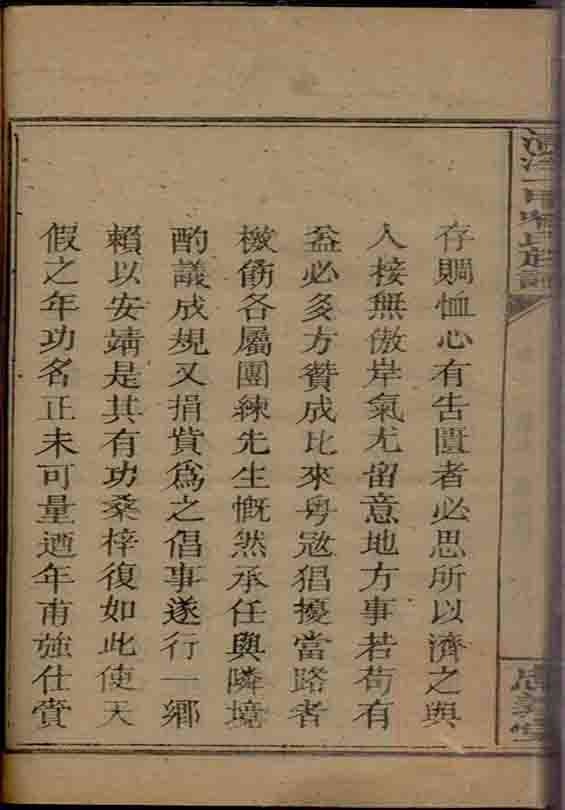 存賙恤心有告匱者必思所以濟之與
人接無傲岸氣尤留意地方事若苟有
益必多方賛成比來粤冦猖擾當路者
檄飭各屬團練先生慨然承任與隣境
酌議成規又捐貲爲之倡事遂行一鄉
賴以安靖是其有功桑梓復如此使天
假之年功名正未可量迺年甫強仕賫